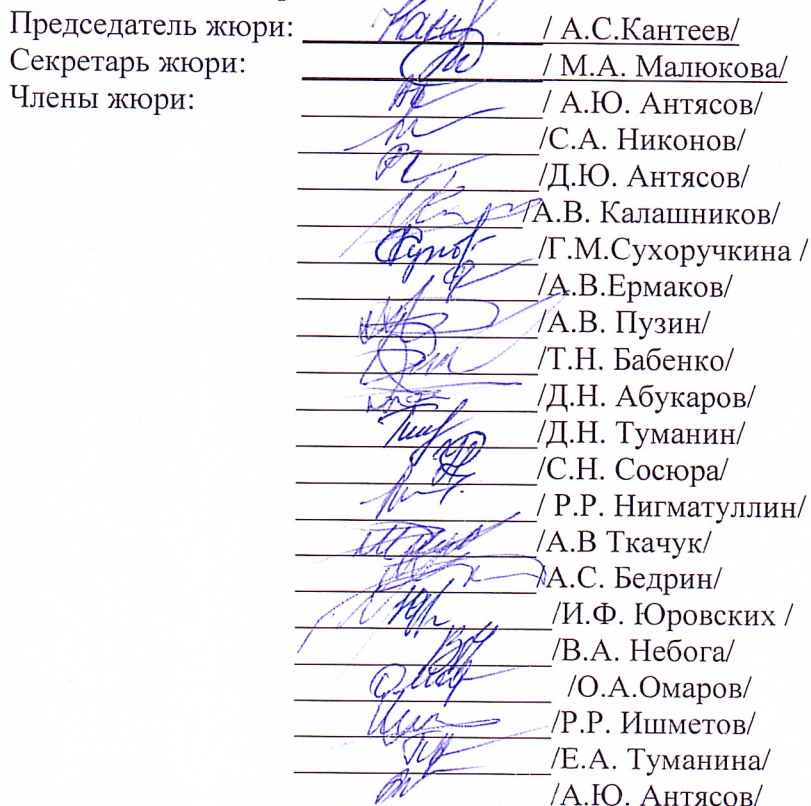 Председатель жюри: / А.С.Кантеев/
Секретарь жюри: / М.А. Малюкова/
Члены жюри: / А.Ю. Антясов/
/С.А. Никонов/
/Д.Ю. Антясов/
/А.В. Калашников/
/Г.М.Сухоручкина /
/А.В.Ермаков/
/А.В. Пузин/
/Т.Н. Бабенко/
/Д.Н. Абукаров/
/Д.Н. Туманин/
/С.Н. Сосюра/
/ Р.Р. Нигматуллин/
/А.В Ткачук/
/А.С. Бедрин/
/И.Ф. Юровских /
/В.А. Небога/
/О.А.Омаров/
/Р.Р. Ишметов/
/Е.А. Туманина/
/А.Ю. Антясов/